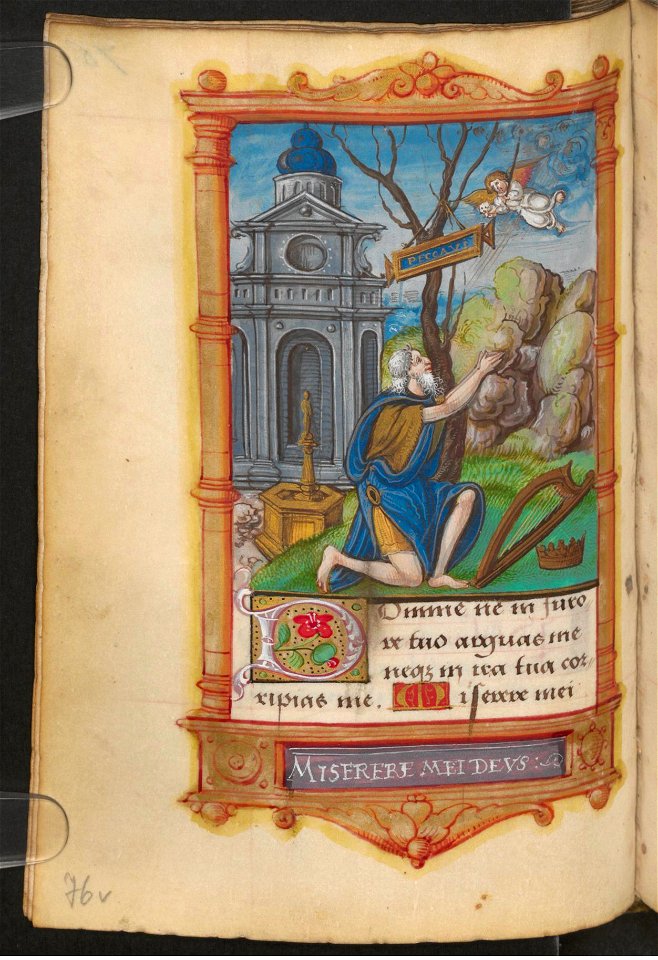 PECCAVI
Domine ne in furo
re tuo arguas me
neqz in ira tua cor-
ripias me. Miserere mei
MISERERE MEI DEVS
76v